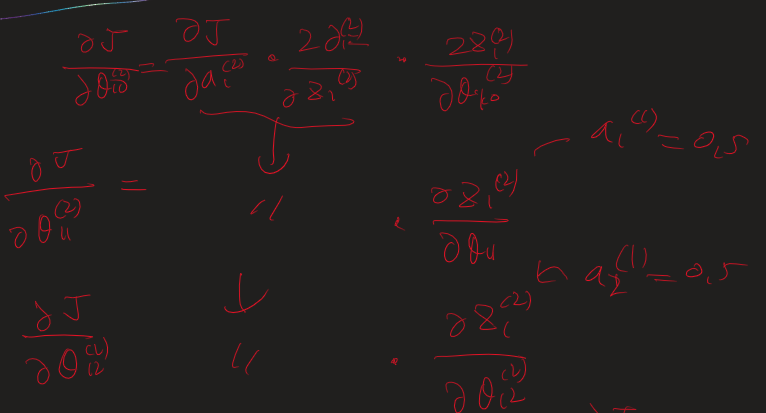 ∂J/∂θ₁₀⁽²⁾ = ∂J/∂a₁⁽²⁾ · ∂a₁⁽²⁾/∂z₁⁽²⁾ · ∂z₁⁽²⁾/∂θ₁₀⁽²⁾
a₁⁽¹⁾ = 0,5
∂J/∂θ₁₁⁽²⁾ = " · ∂z₁⁽²⁾/∂θ₁₁
a₂⁽¹⁾ = 0,5
∂J/∂θ₁₂⁽²⁾ " · ∂z₁⁽²⁾/∂θ₁₂⁽²⁾